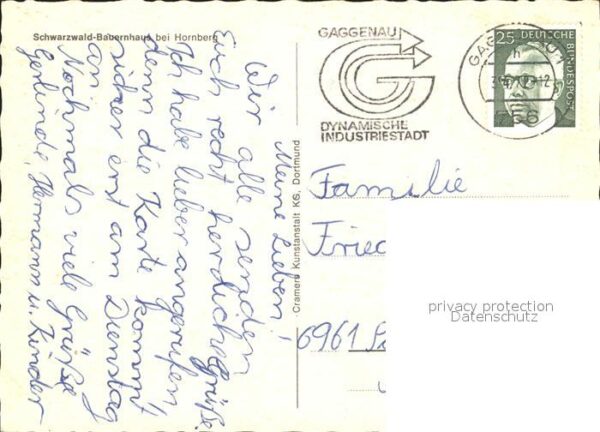 Schwarzwald-Bauernhaus bei Hornberg
Meine Lieben!
Wir alle senden
Euch recht herzliche Grüße.
Ich habe lieber angerufen,
denn die Karte kommt
sicher erst am Dienstag
an.
Nochmals viele Grüße
Gerlinde, Hermann u. Kinder
Cramers Kunstanstalt KG, Dortmund
GAGGENAU
G
DYNAMISCHE
INDUSTRIESTADT
GAGGENAU 1
h
756
25
DEUTSCHE
BUNDESPOST
Familie
Fried
6961
privacy protection
Datenschutz